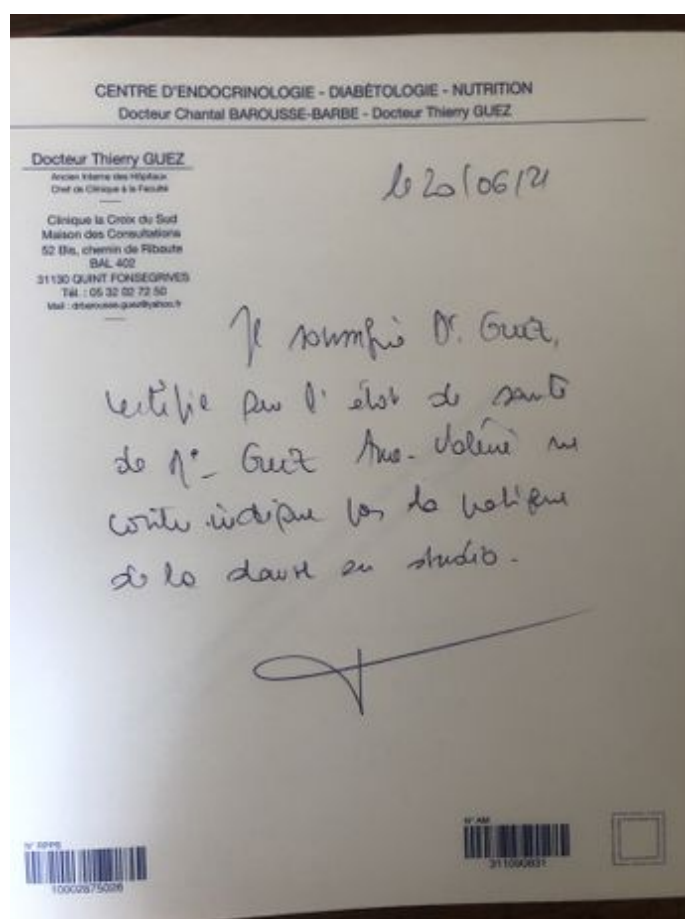 CENTRE D'ENDOCRINOLOGIE - DIABÉTOLOGIE - NUTRITION
Docteur Chantal BAROUSSE-BARBE - Docteur Thierry GUEZ
Docteur Thierry GUEZ
Ancien Interne des Hôpitaux
Chef de Clinique à la Faculté
Clinique la Croix du Sud
Maison des Consultations
52 Bis, chemin de Ribaute
BAL 402
31130 QUINT FONSEGRIVES
Tél. : 05 32 02 72 50
Mail : drbarousse.guez@yahoo.fr
le 20/06/21
Je soussigné Dr. Guez,
certifie que l'état de santé
de Guez Valérie ne
contre indique pas la pratique
de la danse en studio.
N° RPPS
10002875026
N° AM
311090831